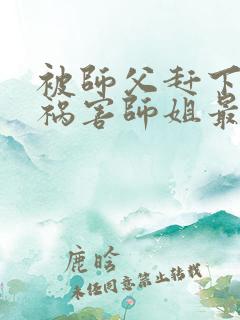 被師父赶下
祸害師姐最
鹿晗
未经同意禁止转载